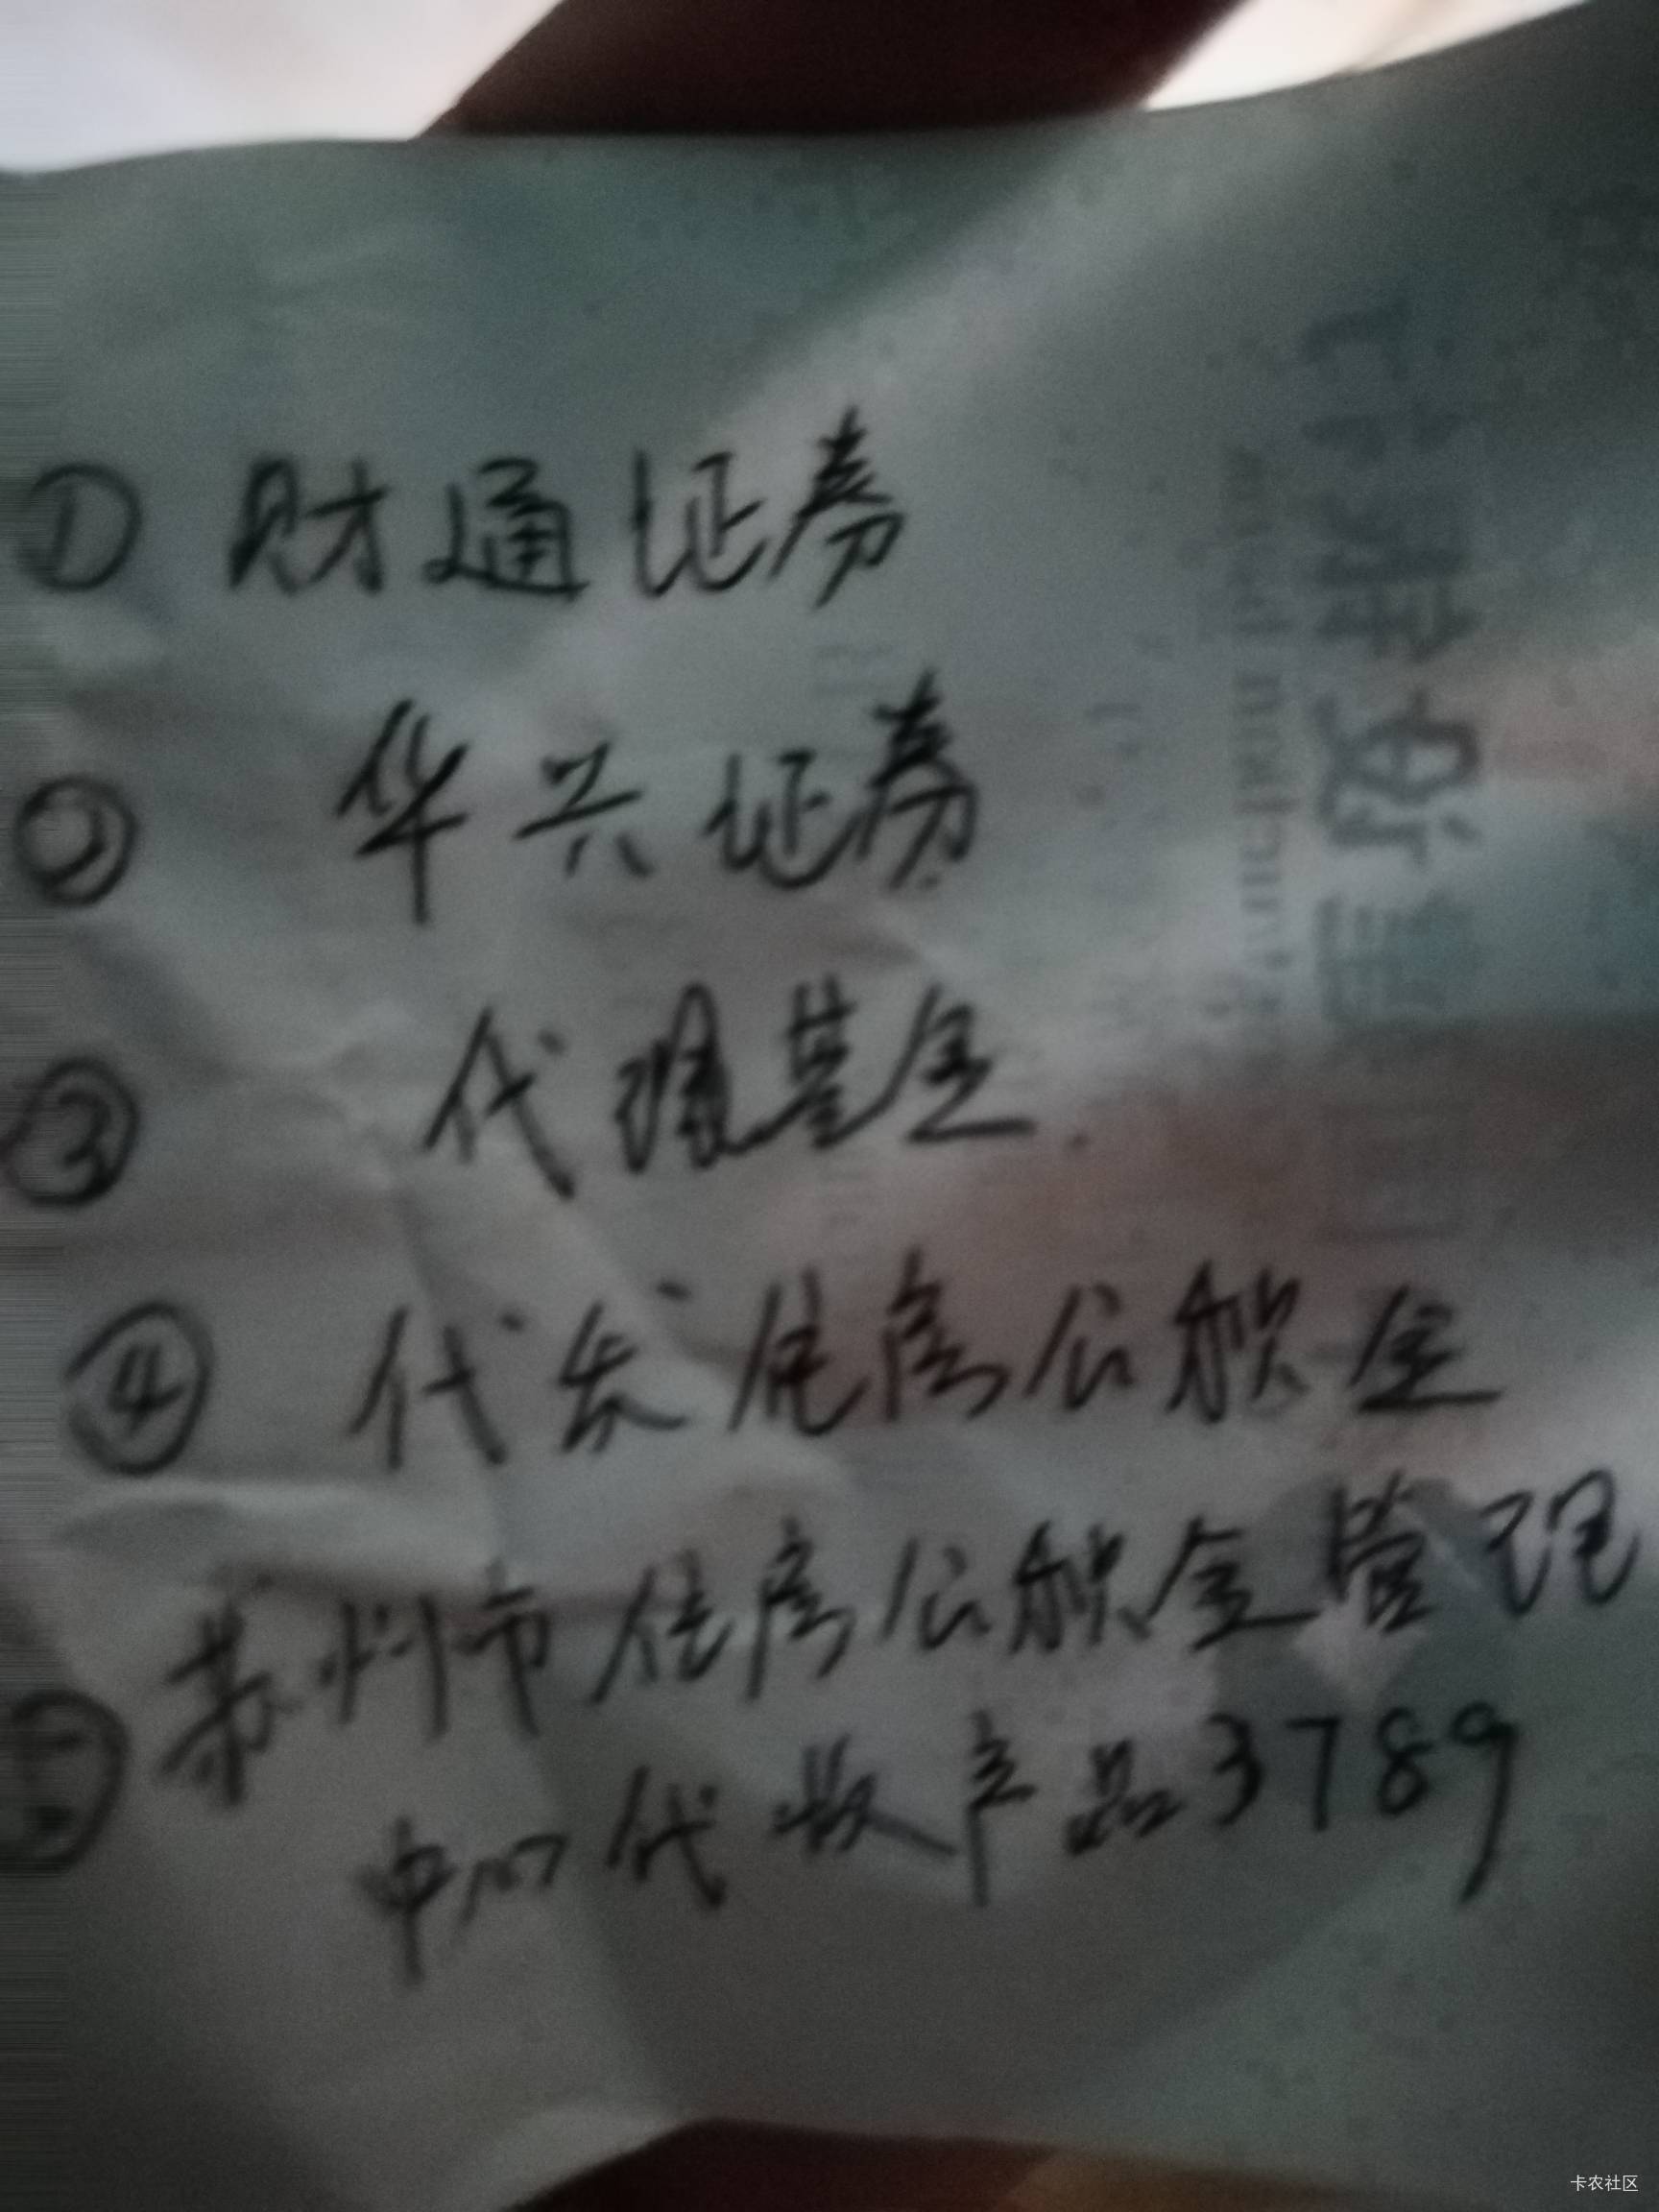 ① 财通证券
② 华兴证券
③ 代理基金
④ 代发住房公积金
⑤ 苏州市住房公积金管理
中心代收产品3789
卡农社区